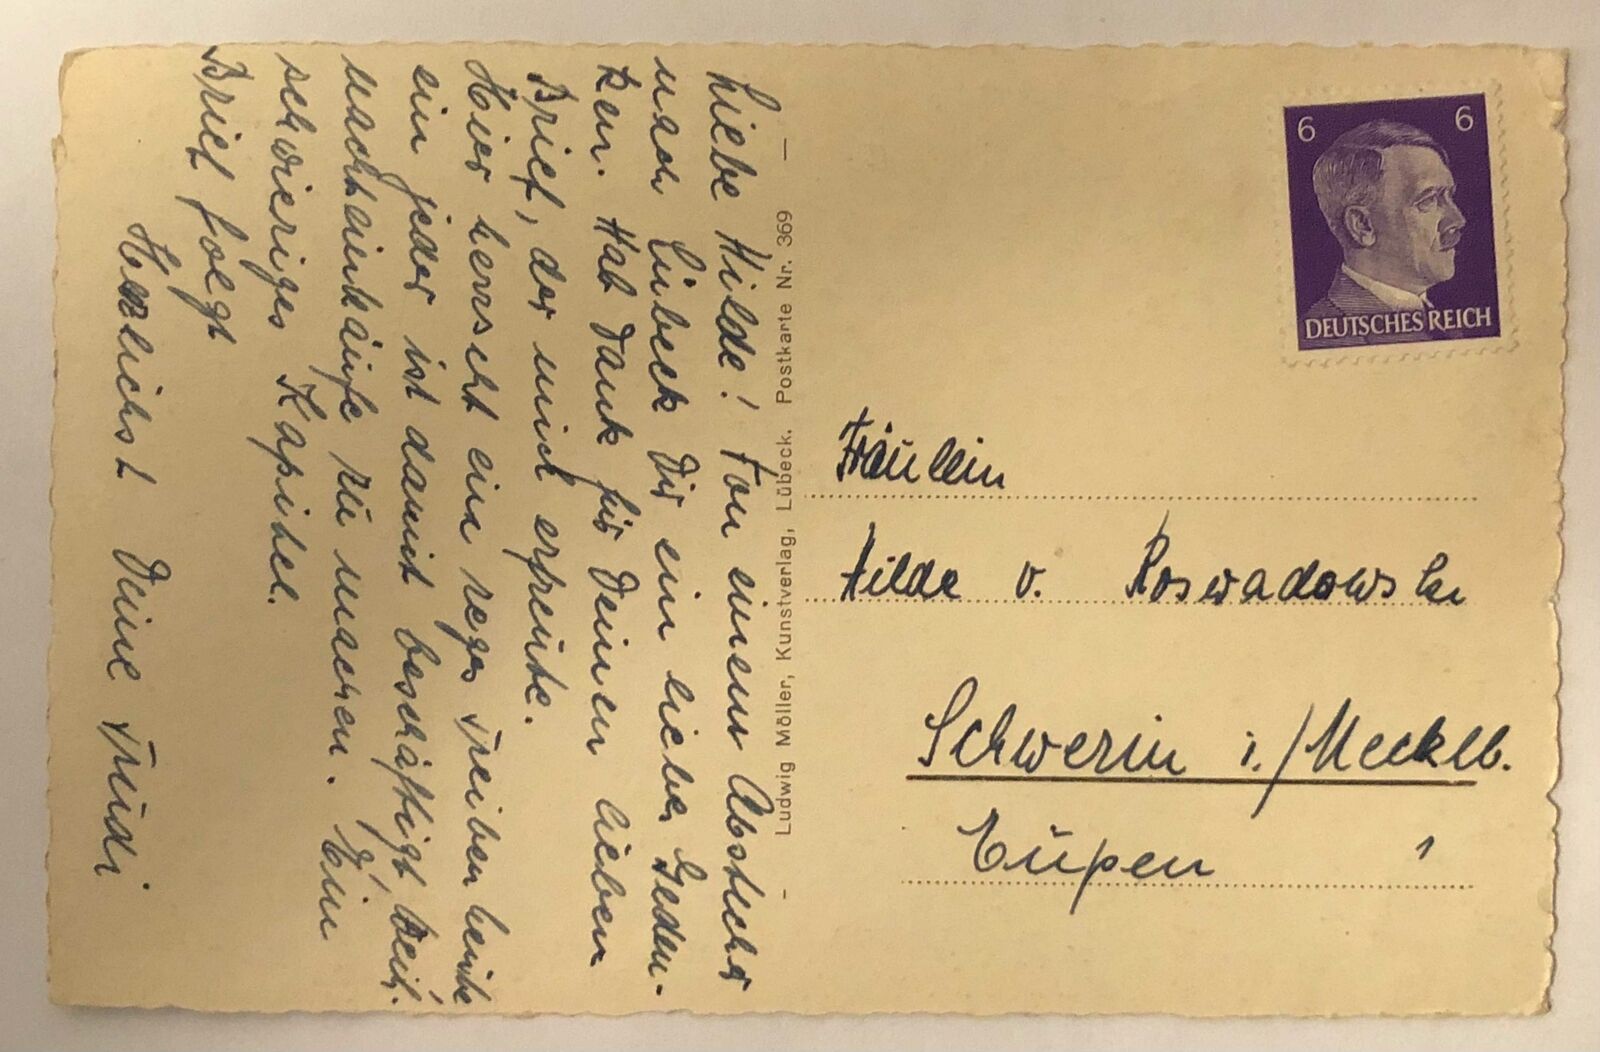 Liebe Hilde! Von einem Abstecher
nach Lübeck Dir ein liebes Geden-
ken. Hab Dank für Deinen lieben
Brief, der mich erfreute.
Hier herrscht ein reges Treiben heute
ein jeder ist damit beschäftigt Weih-
nachtseinkäufe zu machen. Ein
schwieriges Kapitel.
Brief folgt
Herzlichst Deine Trudi
Ludwig Möller, Kunstverlag, Lübeck. Postkarte Nr. 369
6 6
DEUTSCHES REICH
Fräulein
Hilde v. Roswadowski
Schwerin i./Mecklb.